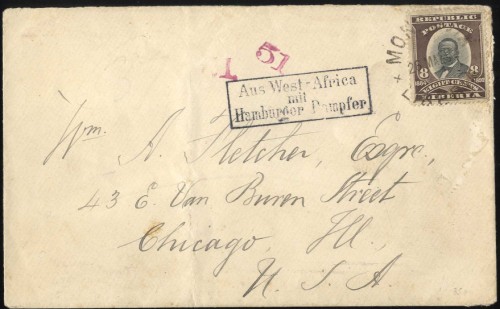 REPUBLIC
POSTAGE
8 8
EIGHT CENTS
LIBERIA
51
Aus West-Africa
mit
Hamburger Dampfer
Wm. A. Fletcher, Esqre.,
43 E. Van Buren Street
Chicago, Ill.,
U. S. A.